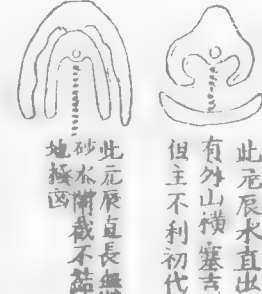 此元辰水直出
有外山横塞吉
但主不利初代
此元辰直長無
砂水關截不結
地極凶